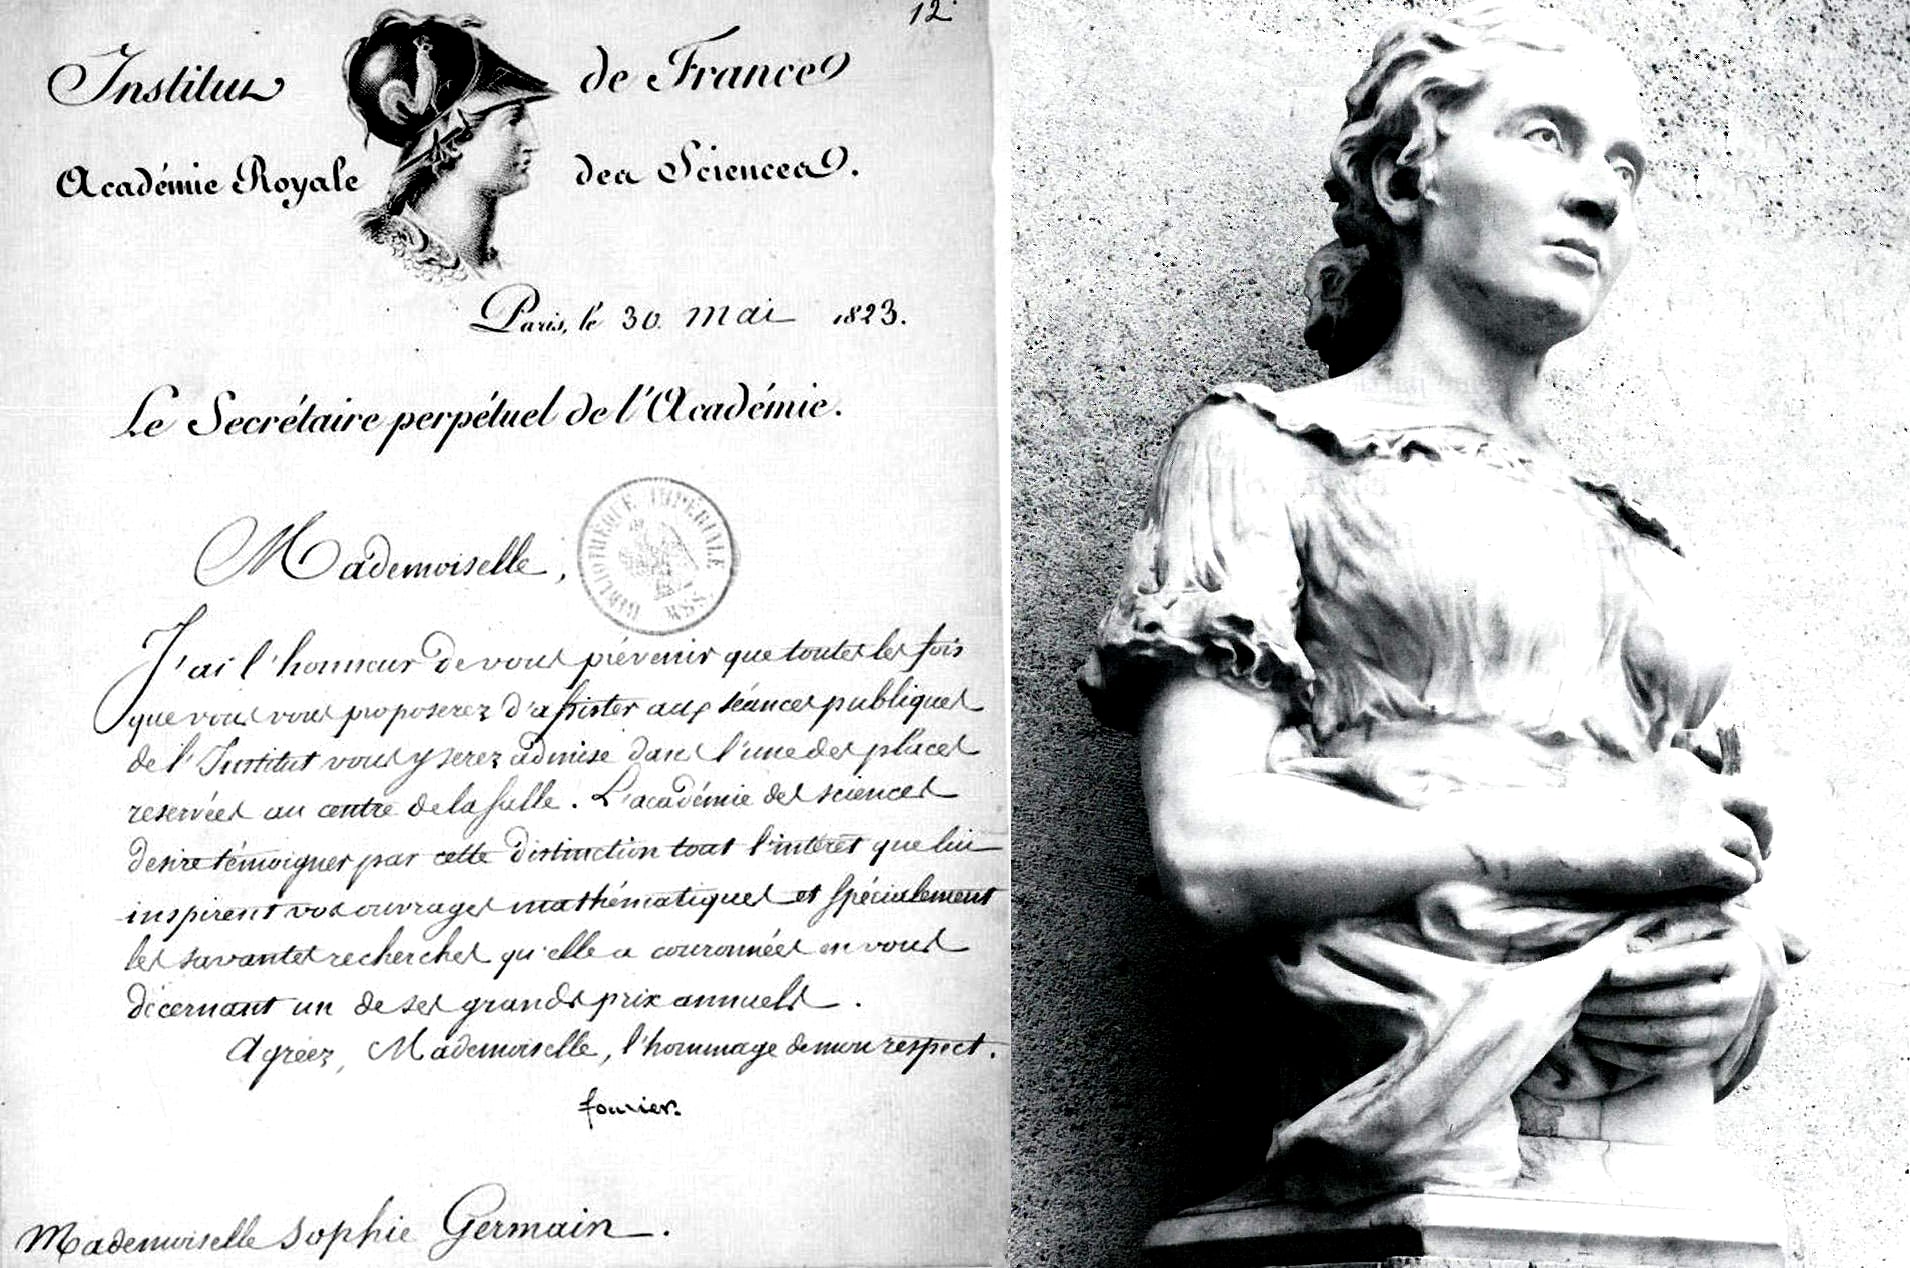 12
Institut de France
Académie Royale des Sciences.
Paris, le 30 mai 1823.
Le Secrétaire perpétuel de l'Académie.
Mademoiselle,
BIBLIOTHÈQUE IMPÉRIALE MSS.
J'ai l'honneur de vous prévenir que toutes les fois
que vous vous proposerez d'assister aux séances publiques
de l'Institut vous y serez admise dans l'une des places
reservées au centre de la salle. L'académie des sciences
desire témoigner par cette distinction tout l'intérêt que lui
inspirent vos ouvrages mathématiques et spécialement
les savantes recherches qu'elle a couronnées en vous
décernant un de ses grands prix annuels.
Agréez, Mademoiselle, l'hommage de mon respect.
fourier.
Mademoiselle Sophie Germain.